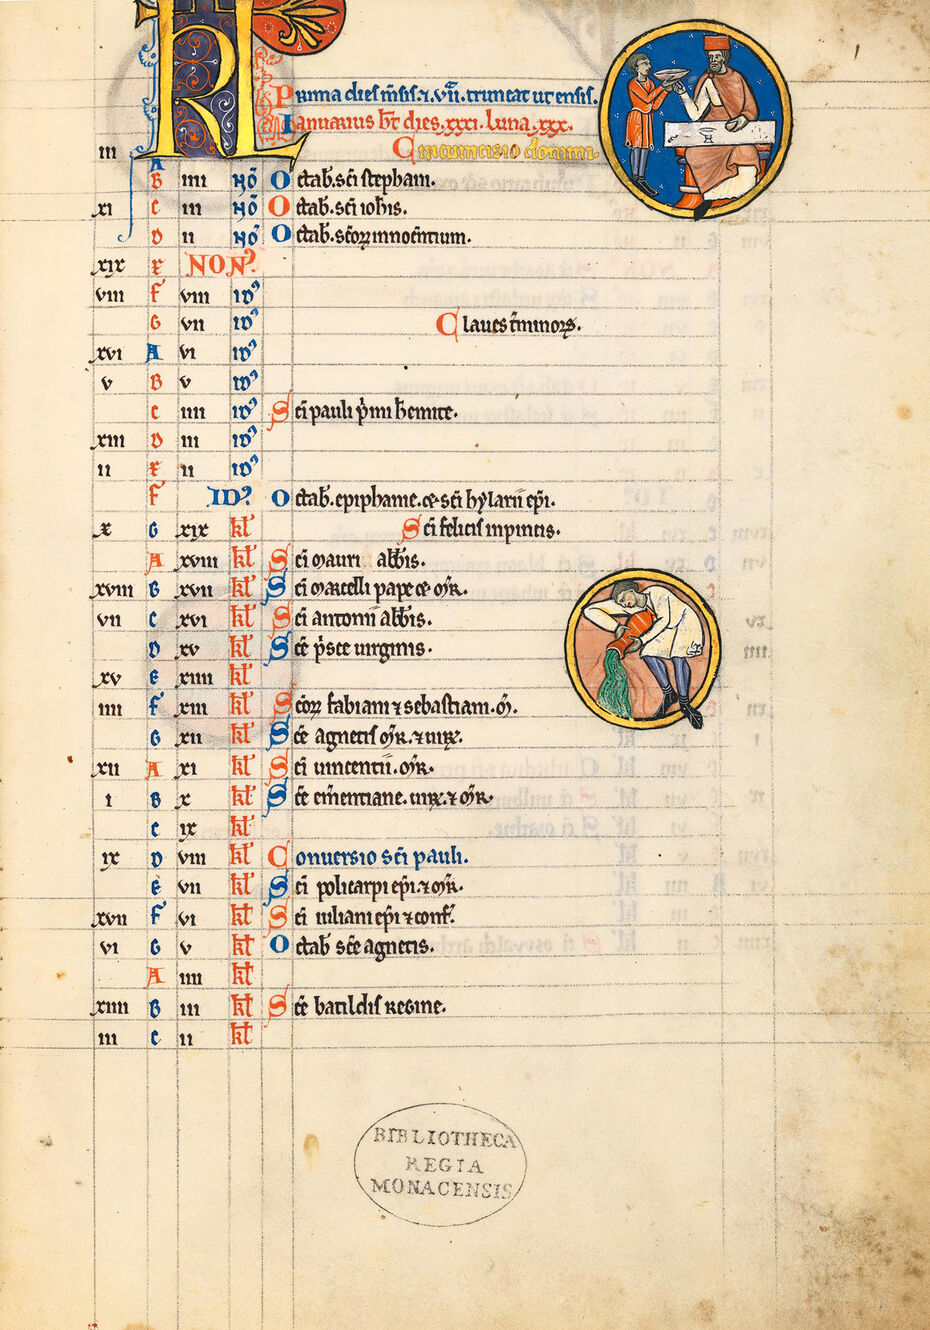 KL
Prima dies m̄sis ⁊ vii. truncat ut ensis.
Ianuarius h̄t dies .xxxi. luna .xxx.
iii A Circumcisio domini
B iiii NO Octab̄. sc̄i stephani.
xi C iii NO Octab̄. sc̄i ioh̄is.
D ii NO Octab̄. sc̄oꝝ innocentium.
xix E NON
viii F viii ID
G vii ID Claues t̄minoꝝ.
xvi A vi ID
v B v ID
C iiii ID Sc̄i pauli p̄mi h̄emite.
xiii D iii ID
ii E ii ID
F ID Octab̄. epiphanie. & sc̄i hylarii ep̄i.
x G xix kl Sc̄i felicis in pincis.
A xviii kl Sc̄i Mauri abb̄is.
xviii B xvii kl Sc̄i Marcelli pape & M̄R.
vii C xvi kl Sc̄i antonii abb̄is.
D xv kl Sc̄e p̄sce uirginis.
xv E xiiii kl
iiii F xiii kl Sc̄oꝝ fabiani ⁊ sebastiani. M̄.
G xii kl Sc̄e agnetis M̄R. ⁊ uiꝝ.
xii A xi kl Sc̄i uincentii. M̄R.
i B x kl Sc̄e em̄entiane. uiꝝ. ⁊ M̄R.
C ix kl
ix D viii kl Conuersio sc̄i pauli.
E vii kl Sc̄i policarpi ep̄i. ⁊ M̄R.
xvii F vi kl Sc̄i iuliani ep̄i ⁊ conf̄.
vi G v kl Octab̄ sc̄e agnetis.
A iiii kl
xiiii B iii kl Sc̄e batildis regine.
iii C ii kl
BIBLIOTHECA
REGIA
MONACENSIS